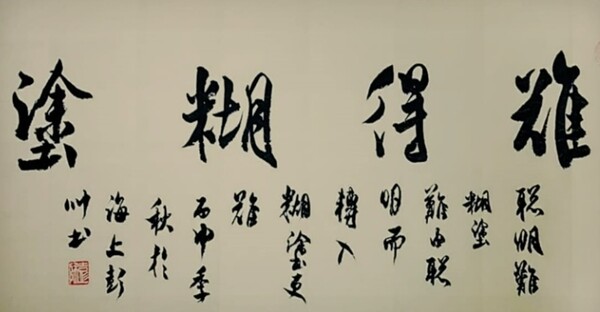 難得糊塗
聰明難
糊塗
難由聰
明而
轉入
糊塗更
難
丙申季
秋於
海上彭
帥書